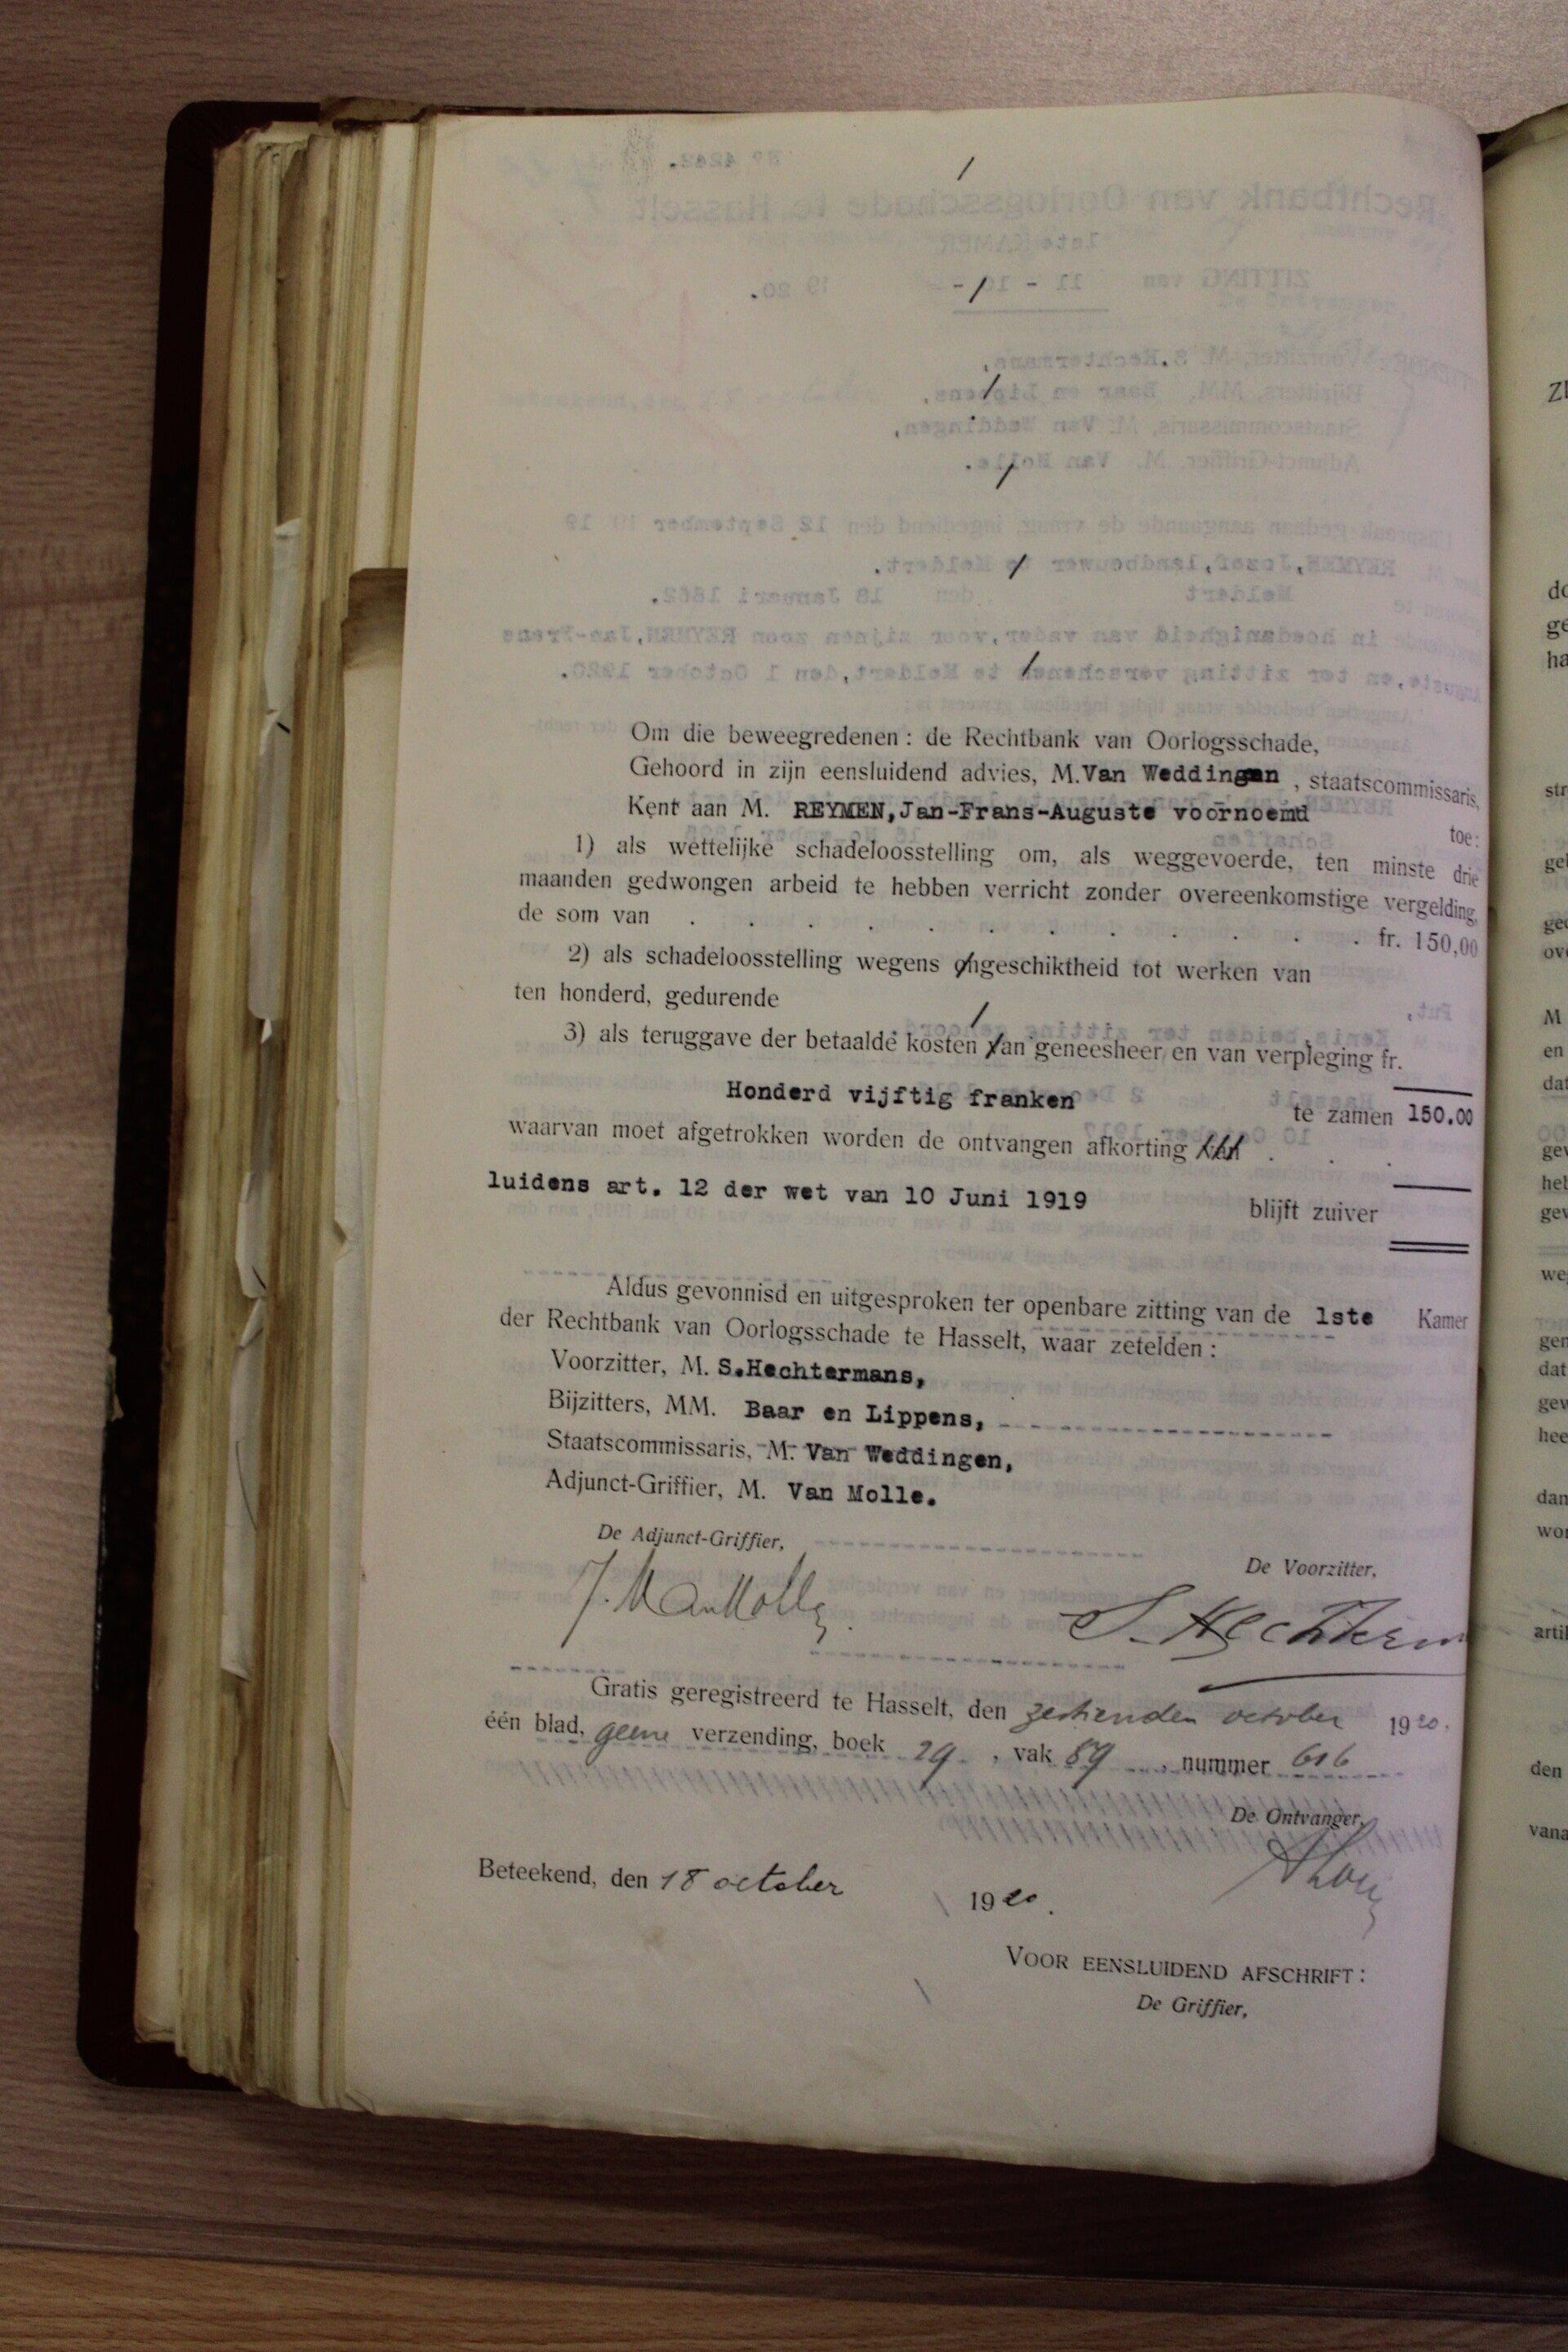 Om die beweegredenen : de Rechtbank van Oorlogsschade,
Gehoord in zijn eensluidend advies, M. Van Weddingen , staatscommissaris,
Kent aan M. REYMEN, Jan-Frans-Auguste voornoemd toe:
1) als wettelijke schadeloosstelling om, als weggevoerde, ten minste drie
maanden gedwongen arbeid te hebben verricht zonder overeenkomstige vergelding,
de som van . . . . . . . . . . . . fr. 150,00
2) als schadeloosstelling wegens ongeschiktheid tot werken van
ten honderd, gedurende
3) als teruggave der betaalde kosten van geneesheer en van verpleging fr.
Honderd vijftig franken te zamen 150.00
waarvan moet afgetrokken worden de ontvangen afkorting . . .
luidens art. 12 der wet van 10 Juni 1919 blijft zuiver
Aldus gevonnisd en uitgesproken ter openbare zitting van de 1ste Kamer
der Rechtbank van Oorlogsschade te Hasselt, waar zetelden :
Voorzitter, M. S.Hechtermans,
Bijzitters, MM. Baar en Lippens,
Staatscommissaris, M. Van Weddingen,
Adjunct-Griffier, M. Van Molle.
De Adjunct-Griffier,
De Voorzitter,
J. VanMolle
S. Hechterm
Gratis geregistreerd te Hasselt, den zestienden october 1920.
één blad, geene verzending, boek 29 , vak 89 , nummer 616
De Ontvanger,
Beteekend, den 18 october 1920.
VOOR EENSLUIDEND AFSCHRIFT :
De Griffier,